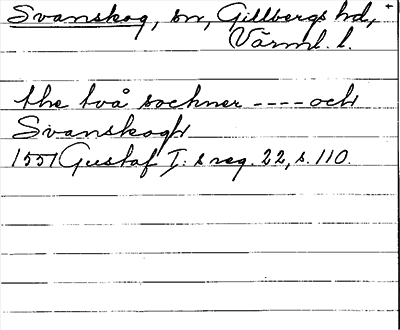 Svanskog, sn, Gillbergs hd,
Värml. l.
the två sochner ---- och
Svanskogh
1551 Gustaf I:s reg. 22, s. 110.